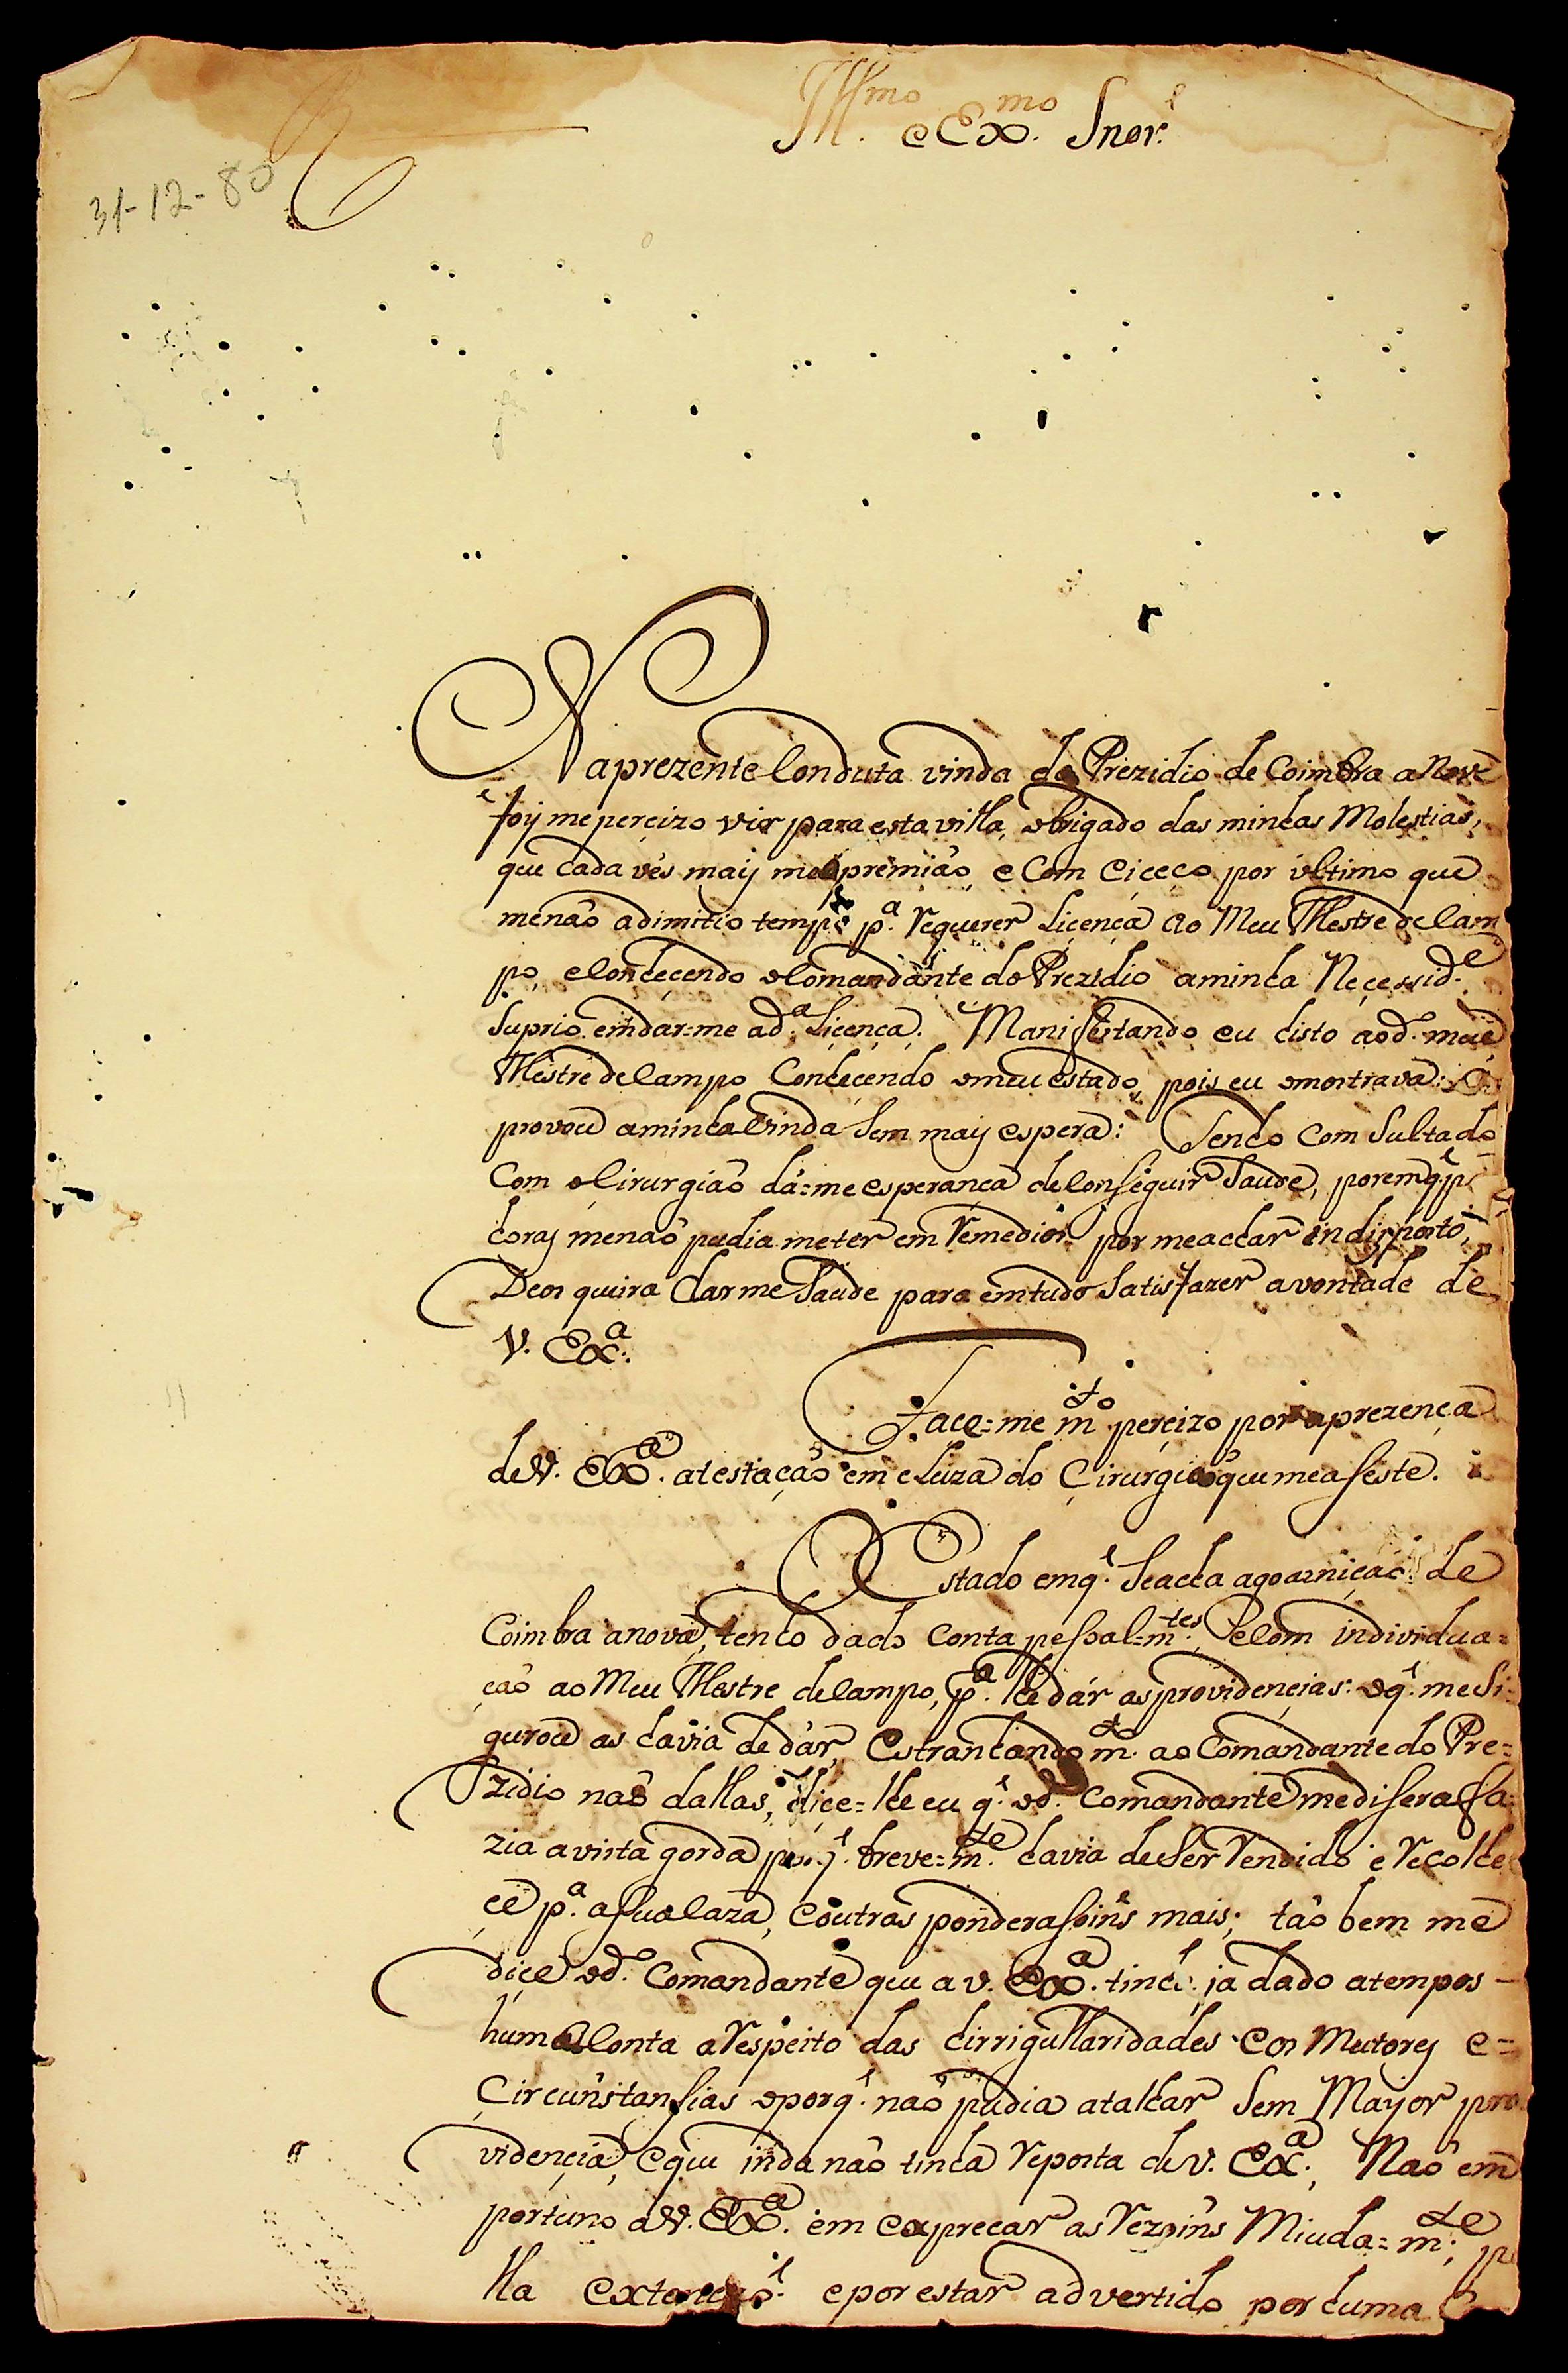 Ill.mo e Ex.mo Snor.
31-12-80
Na prezente Conduta vinda do Prezidio de Coimbra a Nova
foy me percizo vir para esta villa, obrigado das minhas Molestias,
que cada vês maij me opremiaõ, e Com eiceço por ultimo que
me naõ adimitio tempo p.a Requerer Licença ao Meu Mestre de Cam
po, e Conhecendo o Comandante do Prezidio a minha Necessid.e
Suprio em dar=me a d.a Licença. Manifestando eu histo ao d. meu
Mestre de Campo Conhecendo o meu estado, pois eu o mostrava:
provou a minha vinda Sem maij espera: Tenho Com Sultado
Com o Cirurgiaõ dá=me esperança de Conseguir Saude, porem q.
horaj me naõ pudia meter em Remedios por me achar indisposto,
Deos queira dar me Saude para em tudo Satisfazer a vontade de
V. Ex.a
Face=me m.to percizo por a prezença
de V. Ex.a atestaçaõ em cluza do Cirurgiaõ que me aseste.
O Estado em q. Se acha a goarniçaõ de
Coimbra a nova, tenho dado Conta pessoal=m.tes, e Com individua=
çaõ ao Meu Mestre de Campo, p.a lhe dár as providencias: o q. me Si=
gurou as havia de dár, Estranhando m.to ao Comandante do Pre=
zidio naõ dallas, diçe=lhe eu q. o d. Comandante me disera fa=
zia a vista gorda por q. breve=m.te havia de Ser Rendido e Recolhe
ce p.a a Sua Caza, e outras ponderasoins mais; taõ bem me
diçe o d. Comandante que a V. Ex.a tinha ja dado a tempos
huma Conta a Respeito das hirrigullaridades e os Mutorej e=
Circunstansias o porq. naõ pudia atalhar Sem Mayor pro
videncia, e que inda naõ tinha Reposta de V. Ex.a, Naõ em
portuno a V. Ex.a em expreçar as Rezoins Miuda=m.te, pe
lla extenção e por estar advertido por huma